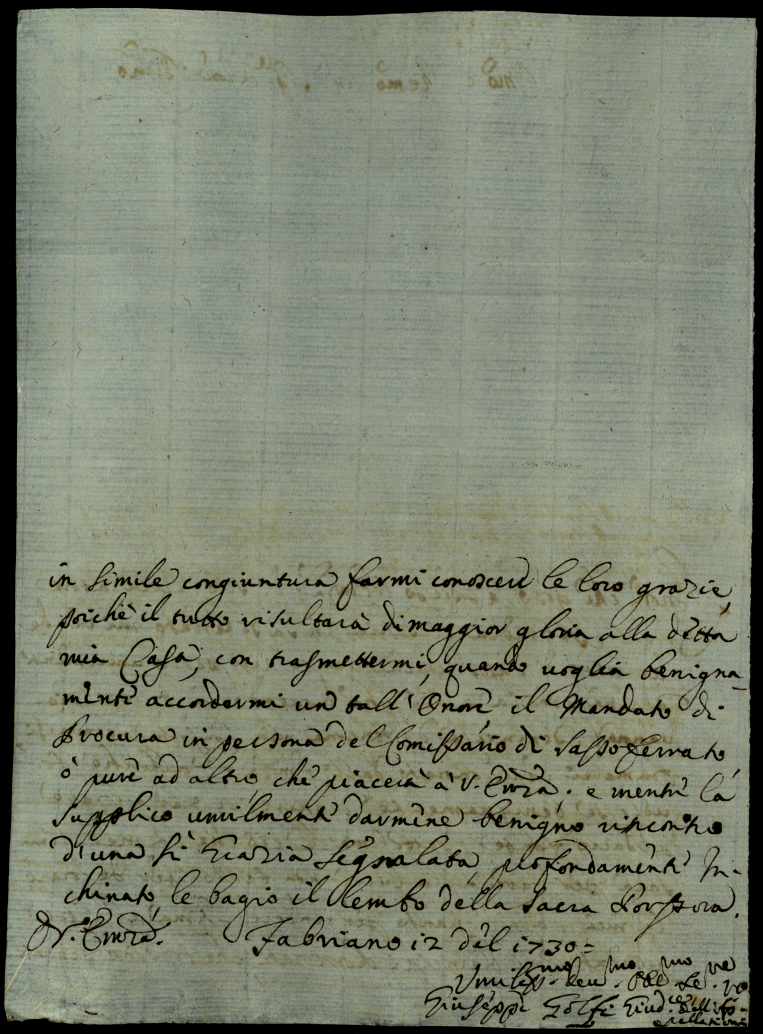 in simile congiuntura farmi conoscere le loro grazie,
poiche il tutto risultarà di maggior gloria alla detta
mia Casa, con trasmettermi, quando voglia benigna-
mente accordarmi un tall'Onore il Mandato di
Procura in persona del Comissario di Sassoferrato
ò pure ad altro, che piacerà à V. Emza. e mentre la
supplico umilmente darmene benigno riscontro
d'una sì Grazia segnalata, profondamente In-
chinato, le bagio il lembo della Sacra Porpora.
D V. Emza. Fabriano 12 del 1730 =
Umiliss.mo Dev.mo Obl.mo Se.re
Giuseppe Giud.ce